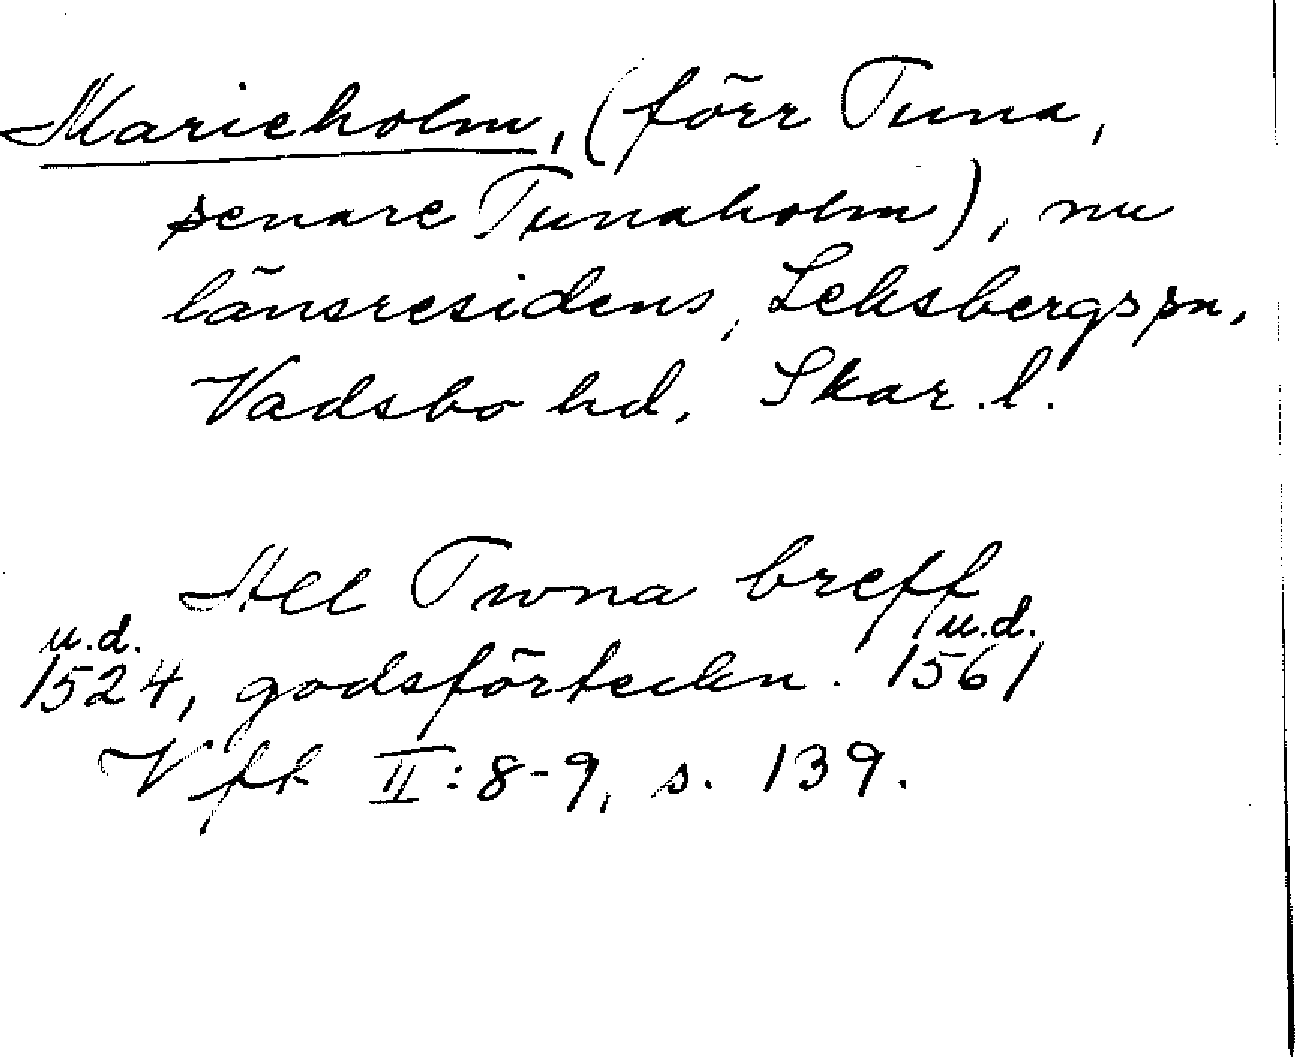 Marieholm, (förr Tuna,
senare Tunaholm), nu
länsresidens, Leksbergs sn,
Vadsbo hd, Skar. l.
All Twna breff
u.d. 1524, godsförteckn. u.d. 1561
Vfk II:8-9, s. 139.